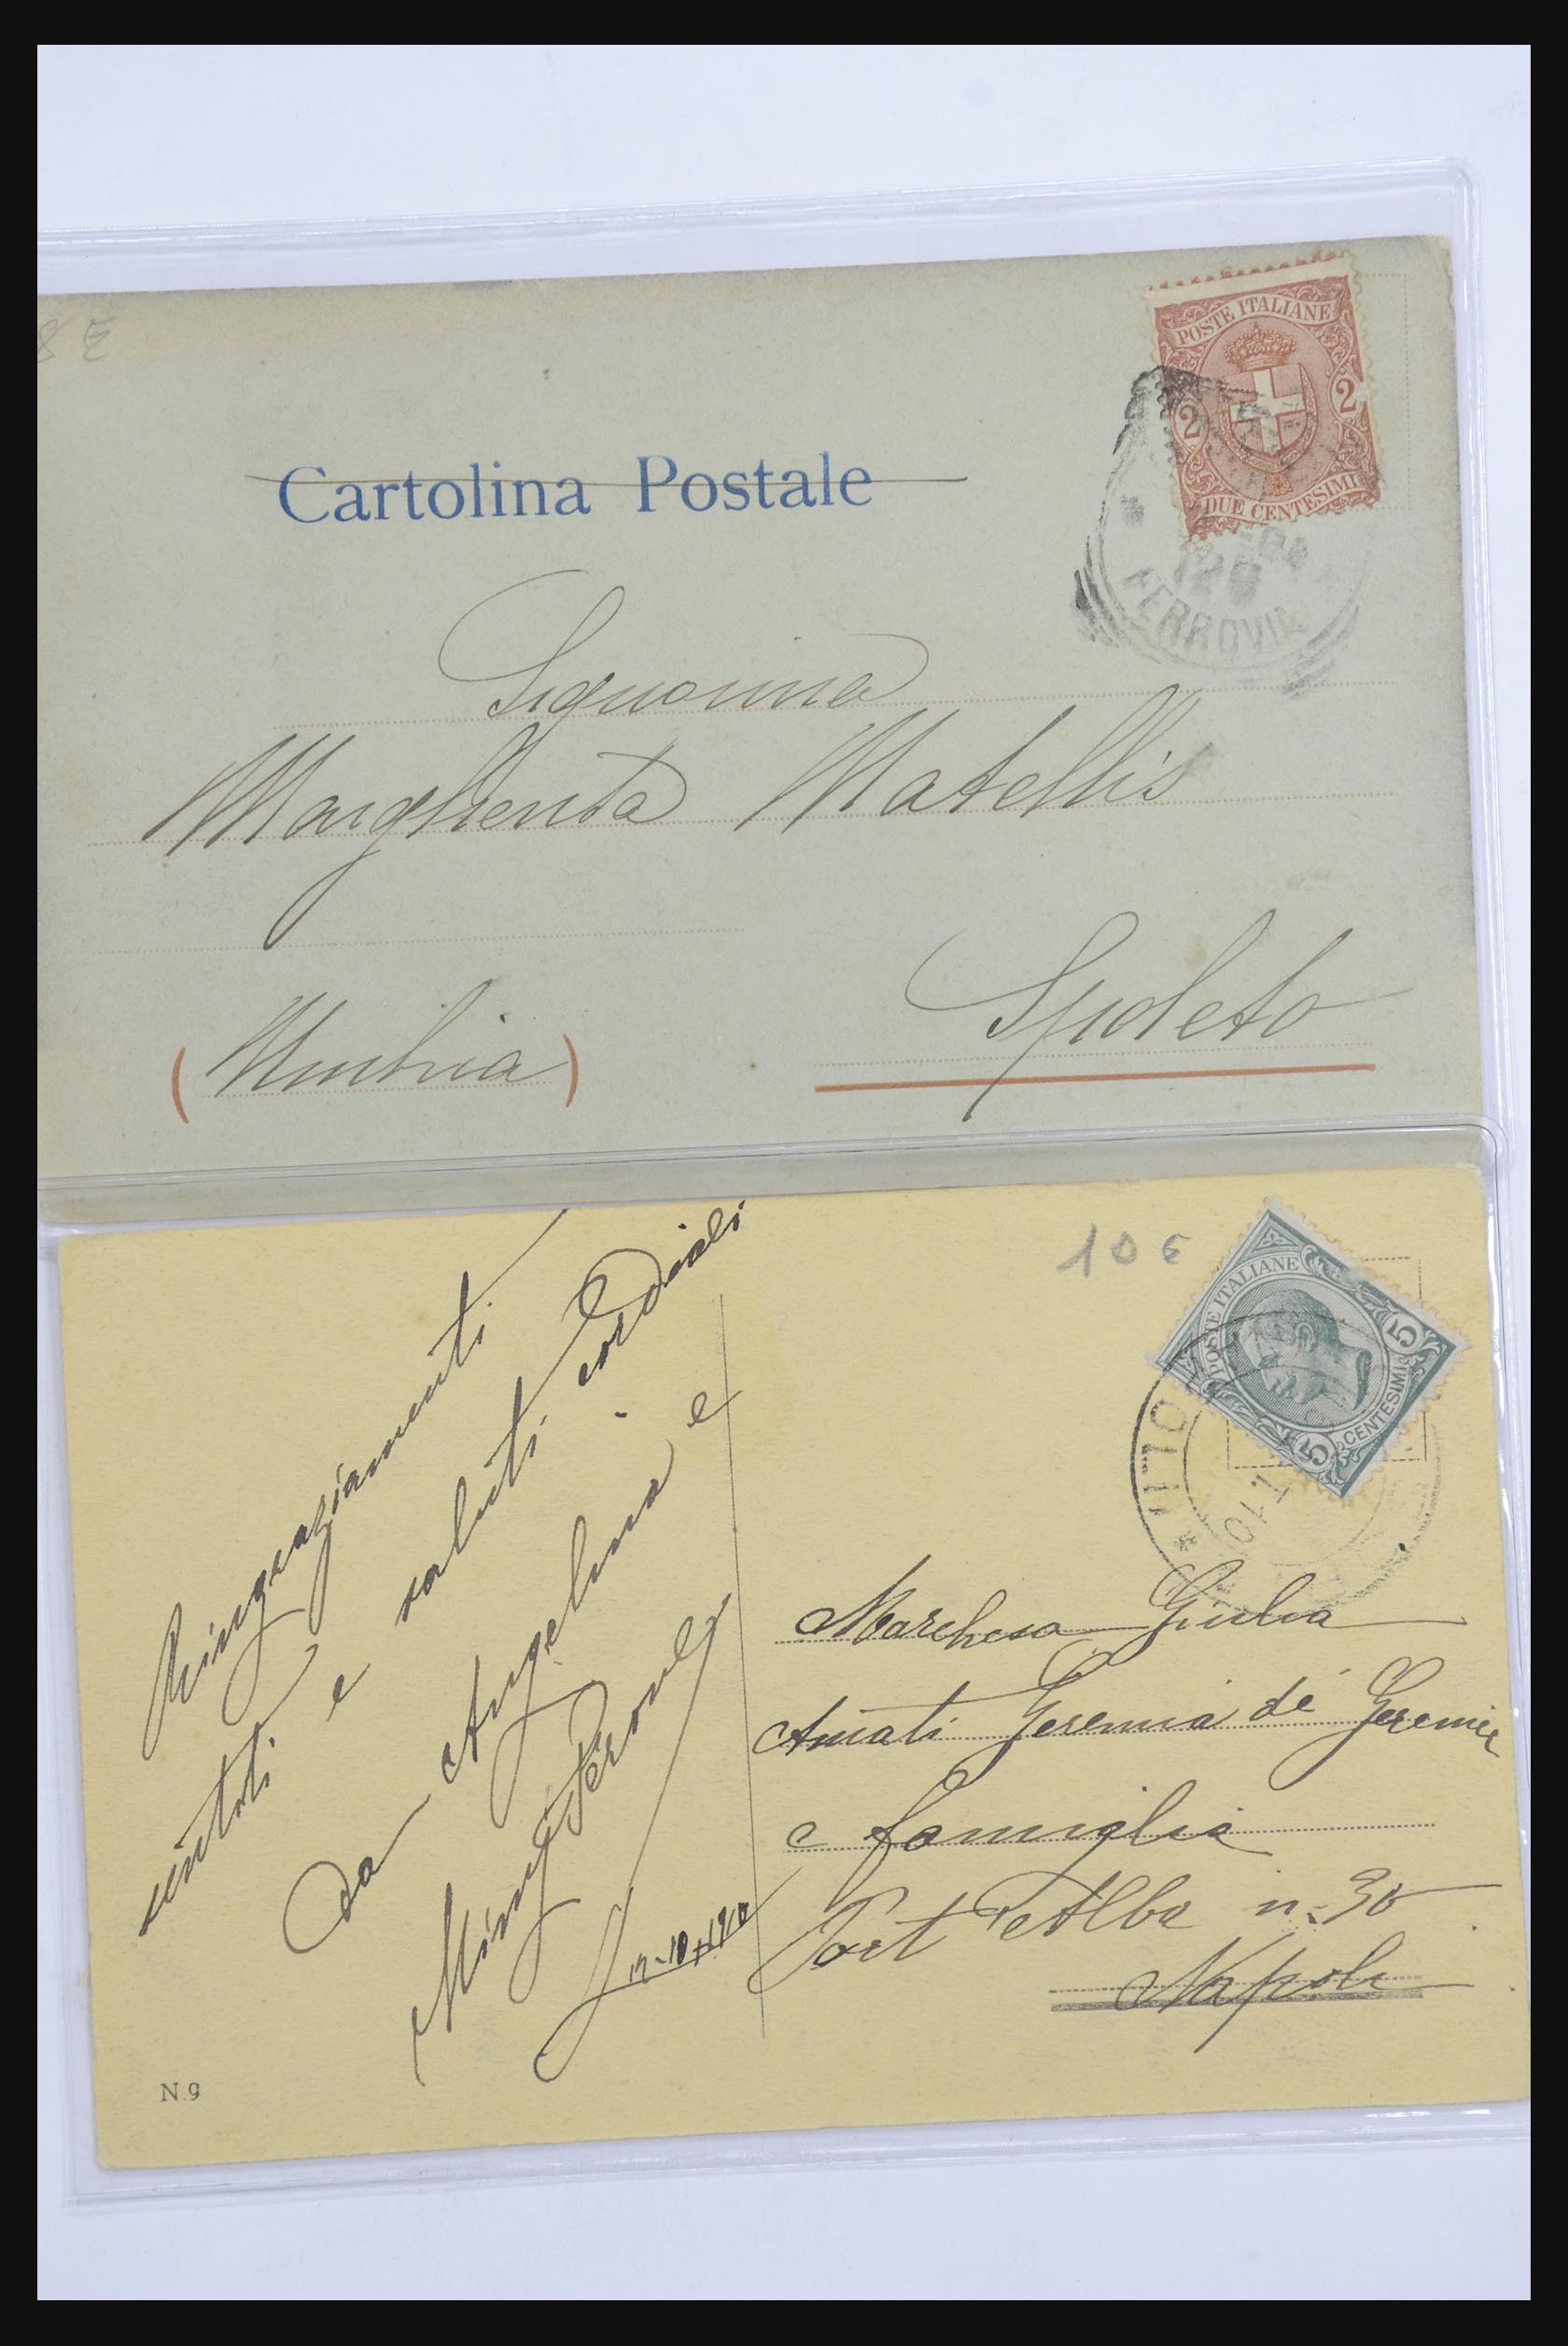 8 E
POSTE ITALIANE
2 2
DUE CENTESIMI
Cartolina Postale
FERROVIA
Signorina
Margherita Matellis
Spoleto
(Umbria)
10 €
POSTE ITALIANE
5 5
CENTESIMI
Ringraziamenti
sentiti e saluti cordiali
da Angelina e
Mimy Peronly
12-10-1910
Marchesa Giulia
Amati Geremia de Geremie
e famiglia
Port'Alba n. 30
Napoli
N.9